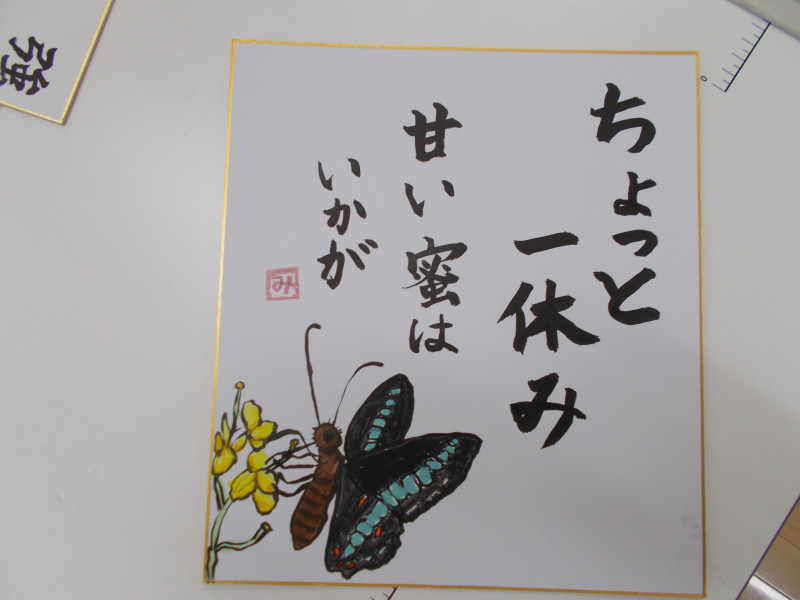 ちょっと
一休み
甘い蜜は
いかが
み
強
0